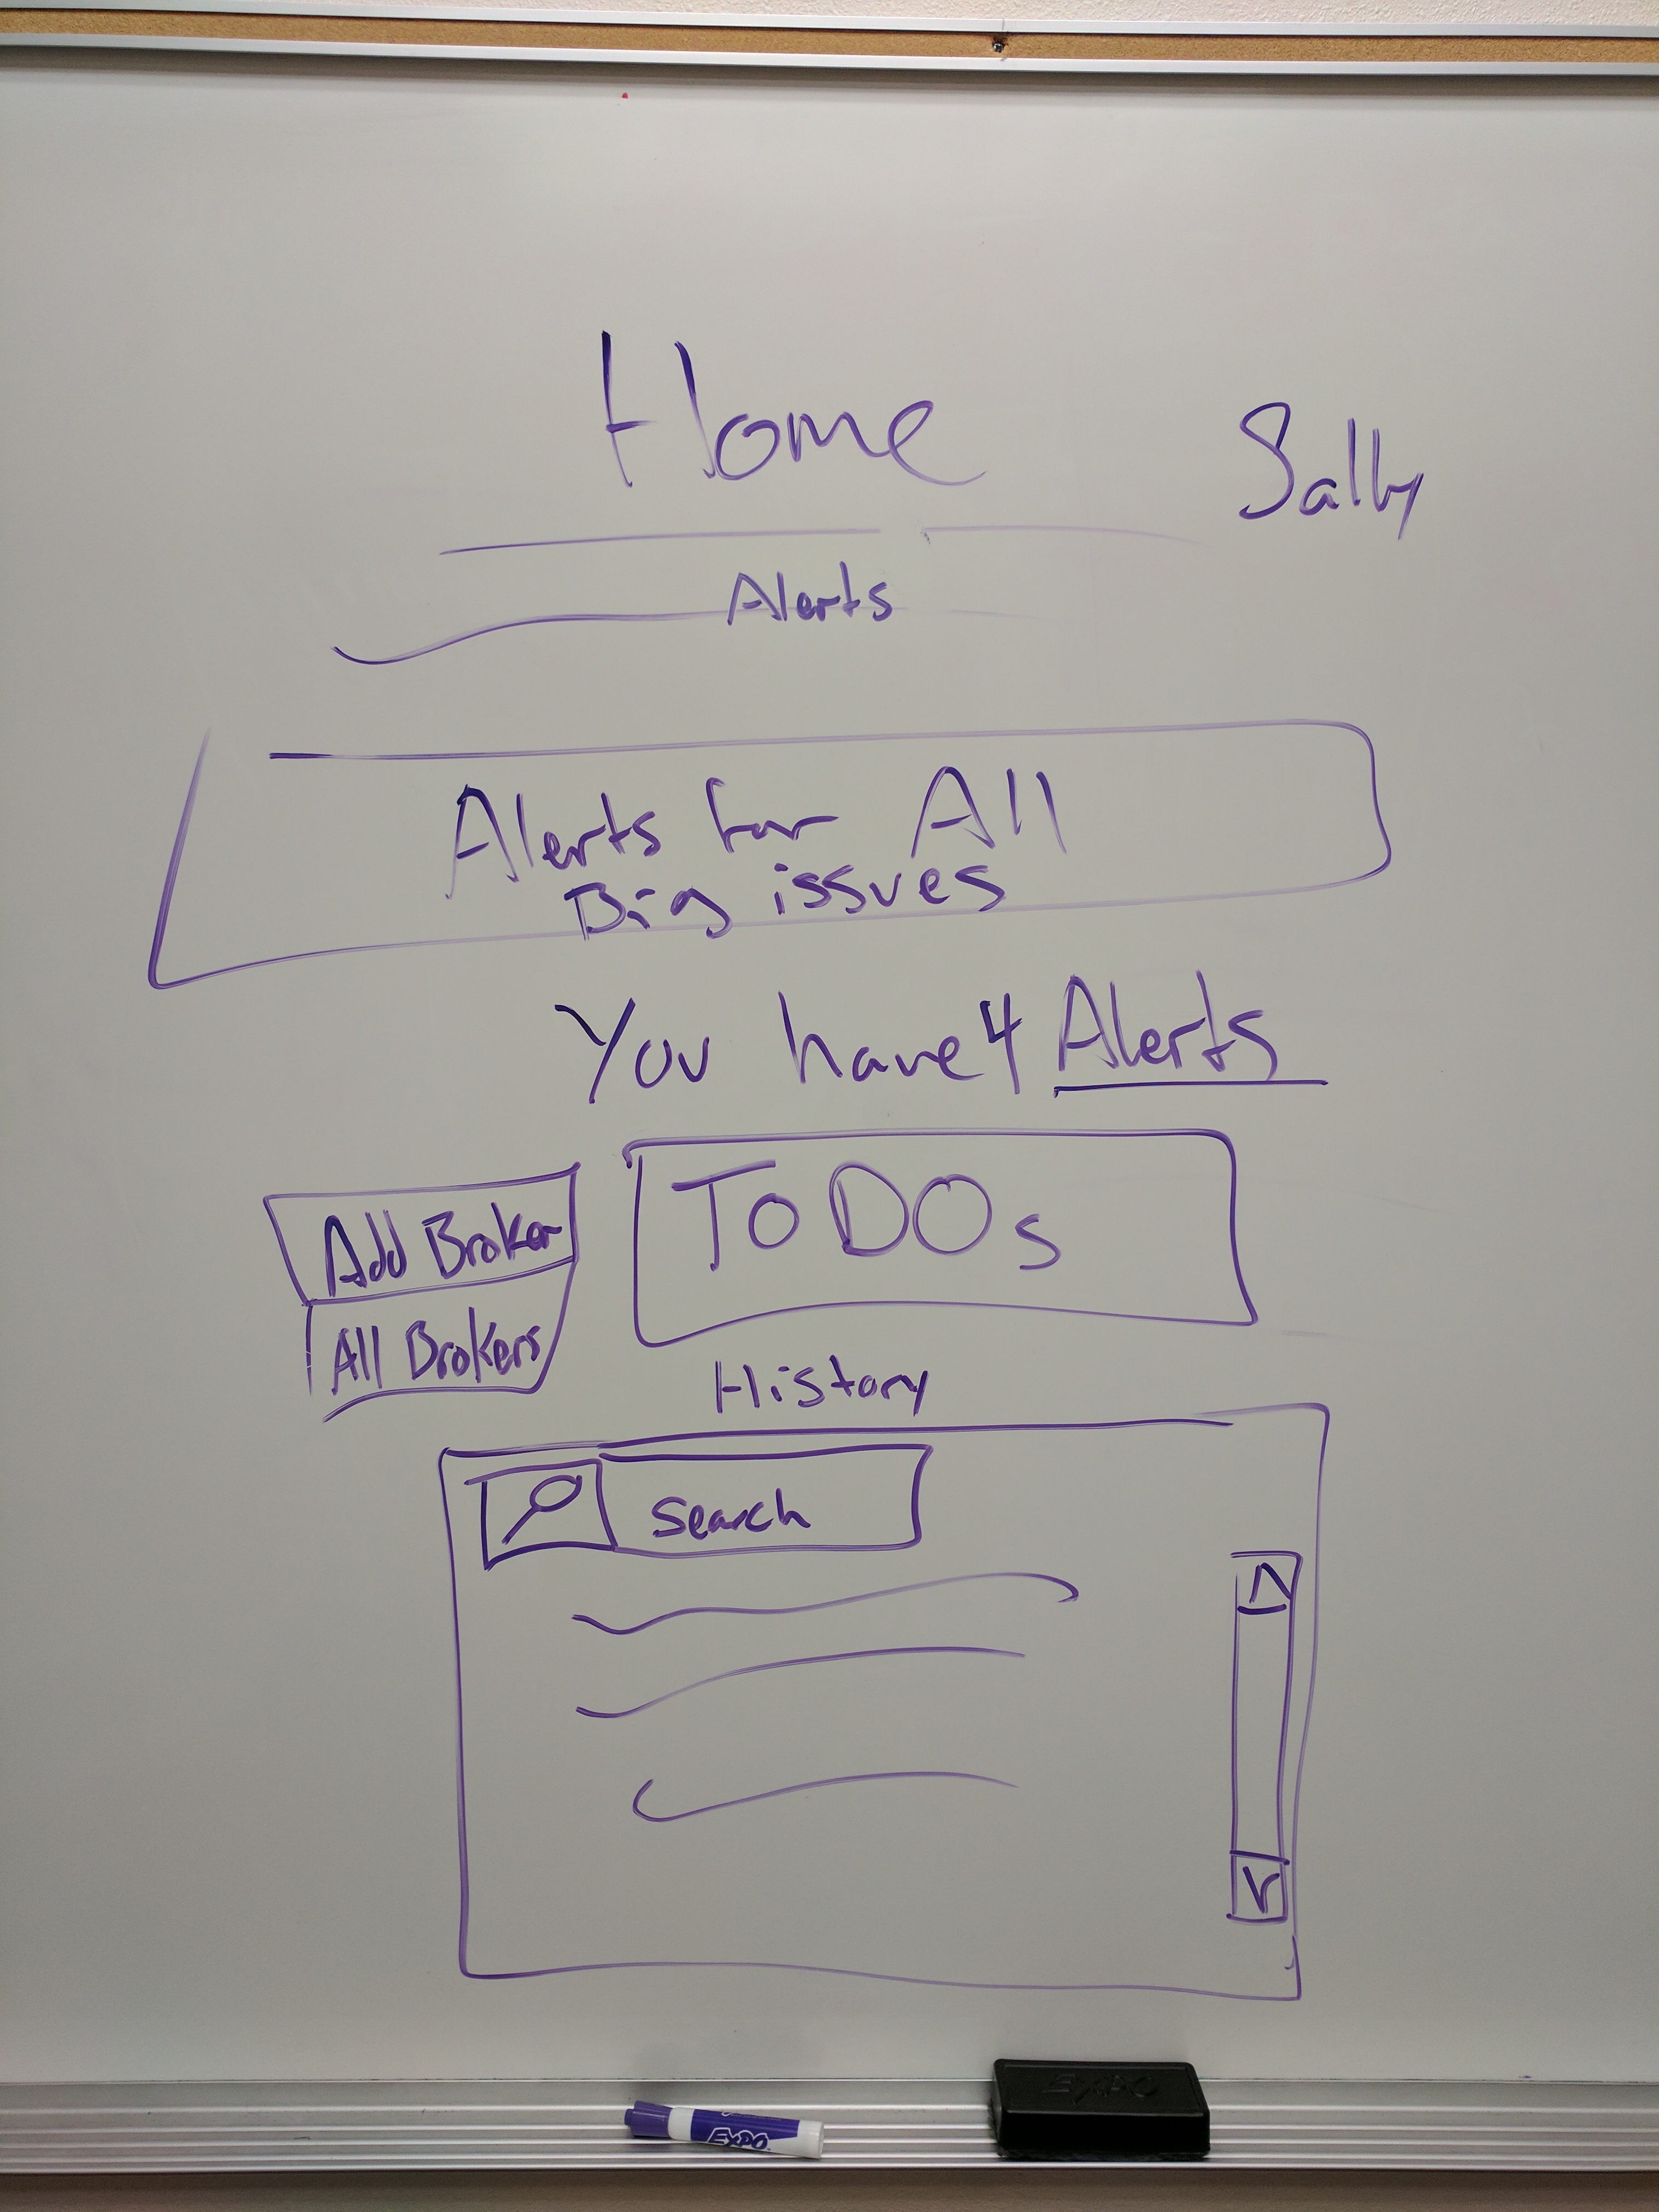 Home
Sally
Alerts
Alerts for All
Big issues
You have 4 Alerts
To DOs
Add Broker
All Brokers
History
Search
EXPO
EXPO